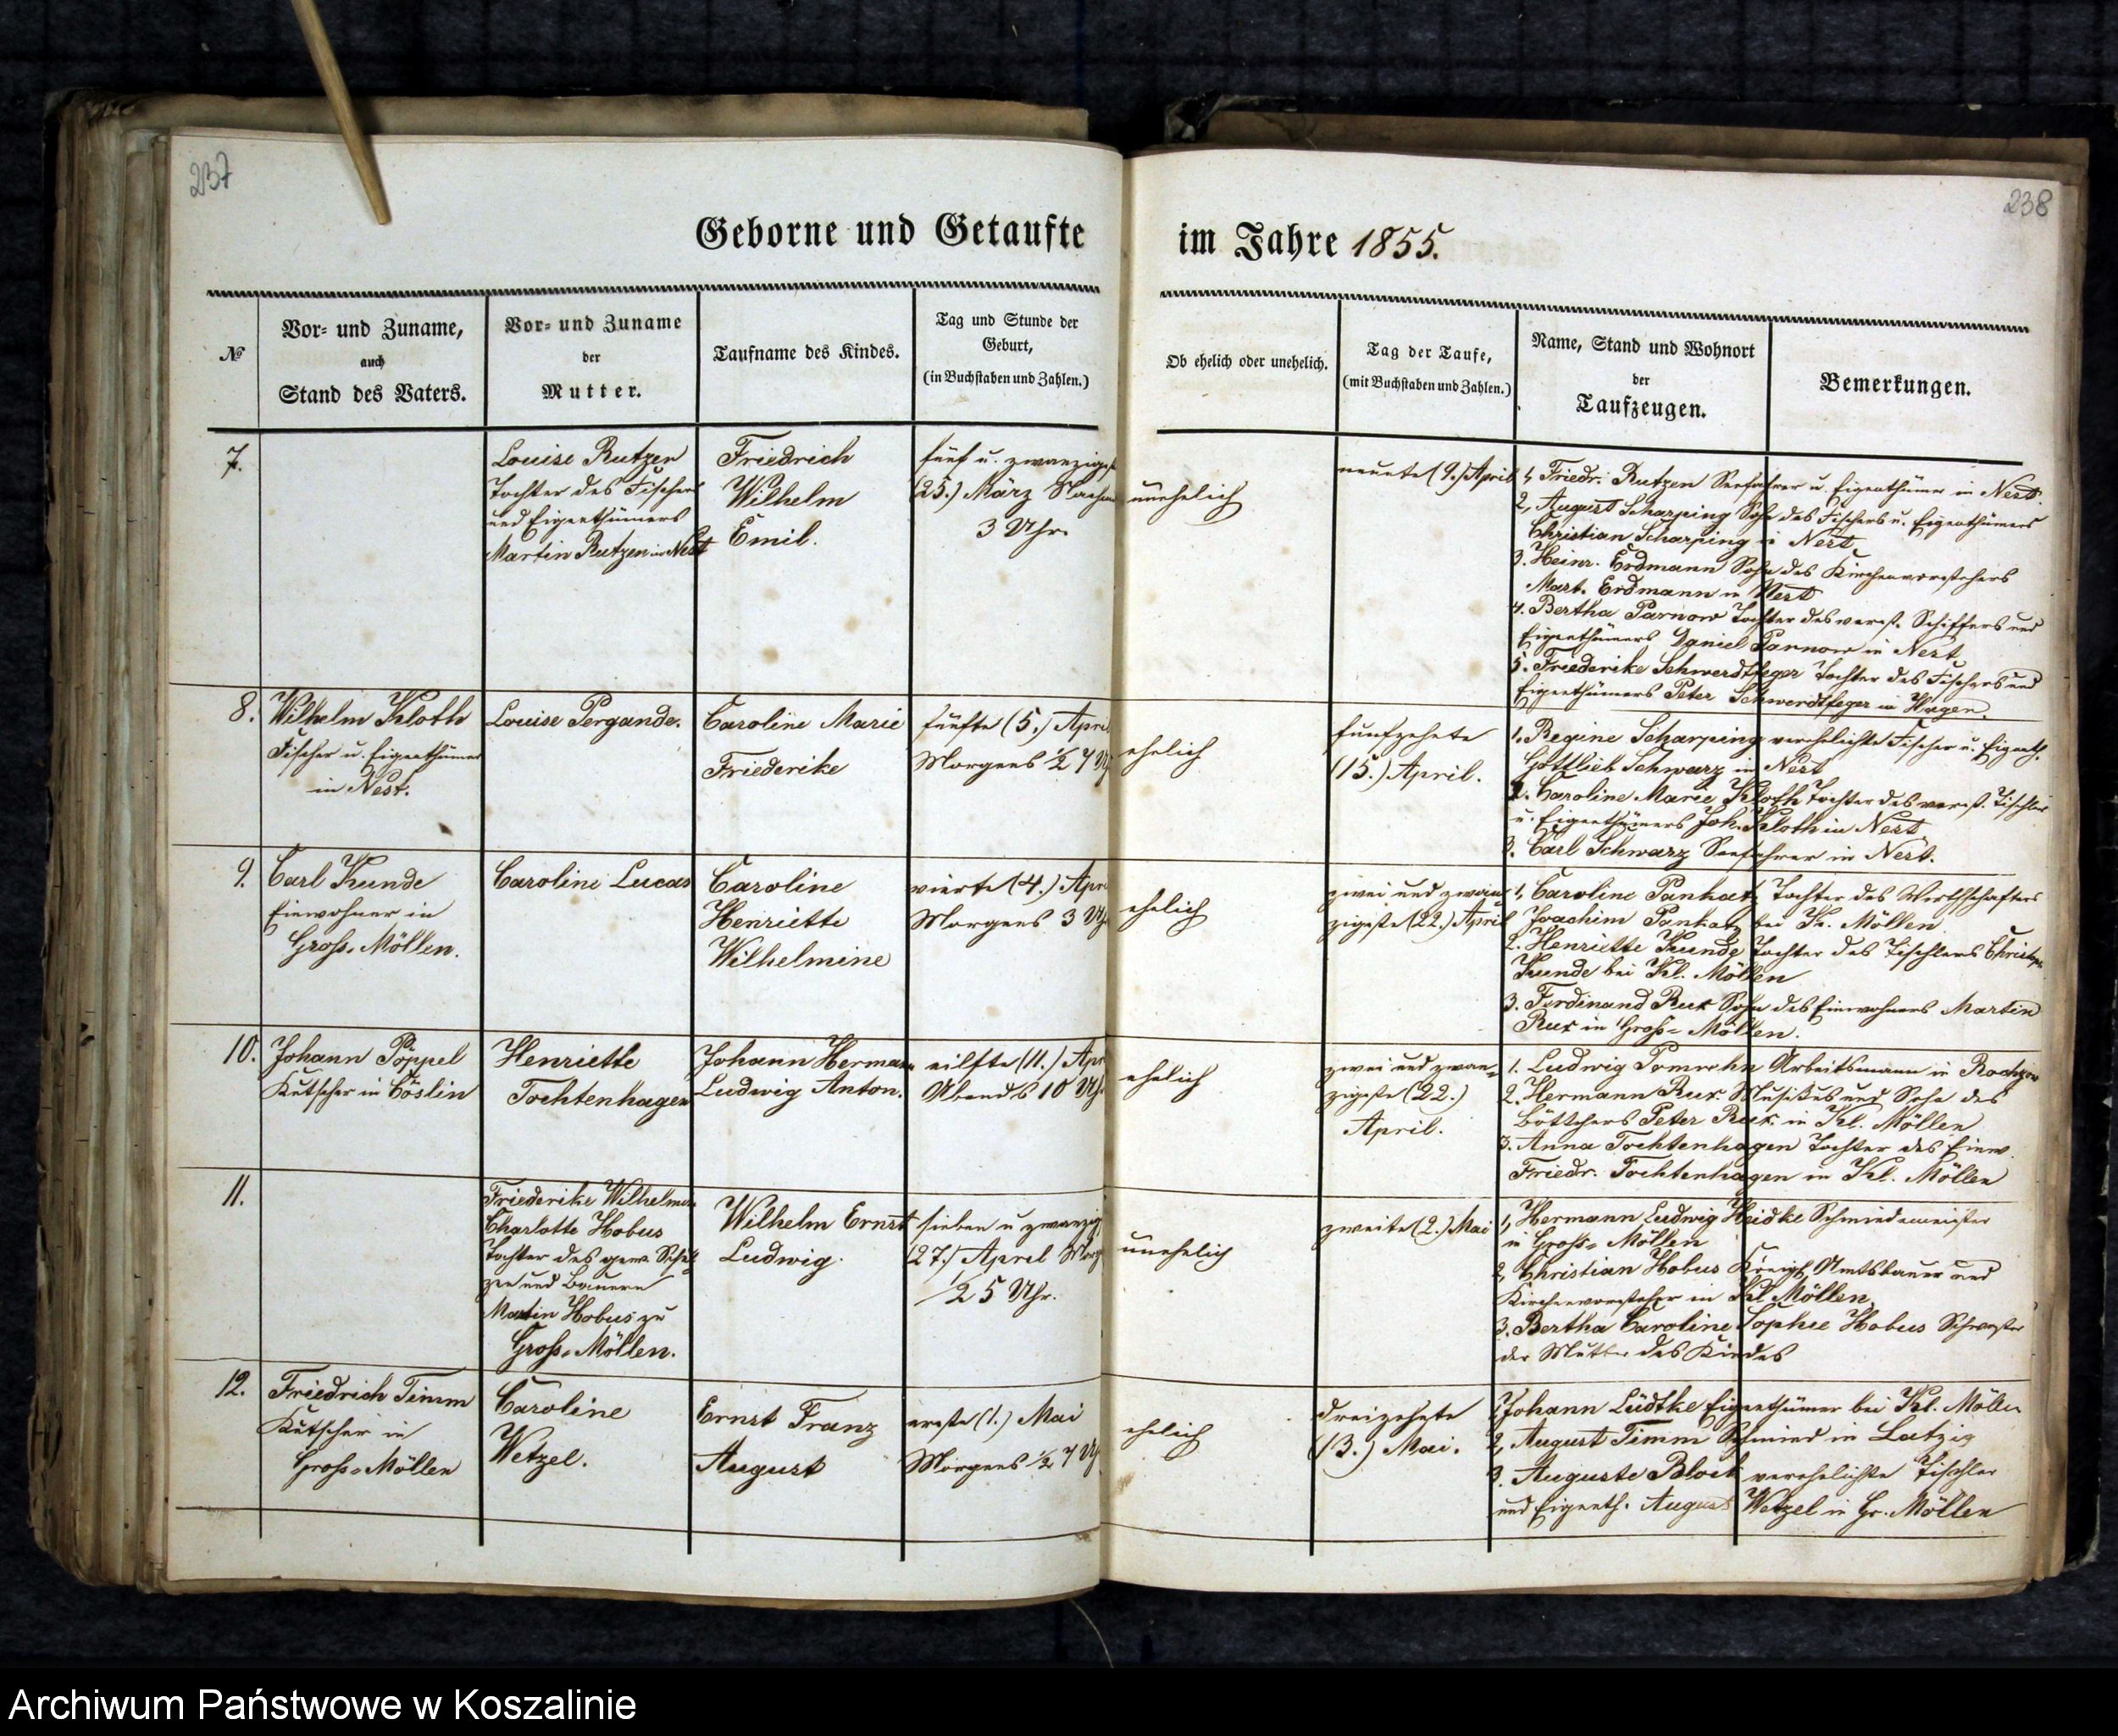 237
238
Geborne und Getaufte
im Jahre 1855.
№
Vor- und Zuname,
auch
Stand des Vaters.
Vor- und Zuname
der
Mutter.
Taufname des Kindes.
Tag und Stunde der
Geburt,
(in Buchstaben und Zahlen.)
Ob ehelich oder unehelich.
Tag der Taufe,
(mit Buchstaben und Zahlen.)
Name, Stand und Wohnort
der
Taufzeugen.
Bemerkungen.
7.
Louise Rutzen
Tochter des Fischers
und Eigenthümers
Martin Rutzen in Nest
Friedrich
Wilhelm
Emil.
fünf u. zwanzigste
(25.) März Nachm
3 Uhr.
unehelich
neunte (9.) April
1, Friedr. Rutzen Seefahrer u. Eigenthümer in Nest
2, August Scharping Sohn des Fischers u. Eigenthümers
Christian Scharping in Nest
3. Heinr. Erdmann Sohn des Kirchenvorstehers
Mart. Erdmann in Nest
4. Bertha Parnow Tochter des verst. Schiffers und
Eigenthümers Daniel Parnow in Nest
5. Friederike Schwerdtfeger Tochter des Fischers und
Eigenthümers Peter Schwerdtfeger in Hagen.
8.
Wilhelm Kloth
Fischer u. Eigenthümer
in Nest.
Louise Pergande.
Caroline Marie
Friederike
fünfte (5.) April
Morgens ½ 7 Uhr
ehelich
funfzehnte
(15.) April.
1. Regine Scharping verehelichte Fischer u. Eigenth.
Gottlieb Schwarz in Nest
2. Caroline Marie Kloth Tochter des verst. Tischler
u. Eigenthümers Joh. Kloth in Nest
3. Carl Schwarz Seefahrer in Nest.
9.
Carl Kunde
Einwohner in
Gross-Möllen.
Caroline Lucas
Caroline
Henriette
Wilhelmine
vierte (4.) April
Morgens 3 Uhr
ehelich
zwei und zwan-
zigste (22.) April
1, Caroline Panhatz Tochter des Wirthschafters
Joachim Panhatz bei Kl. Möllen
2. Henriette Kunde Tochter des Tischlers Christoph
Kunde bei Kl. Möllen
3. Ferdinand Rux Sohn des Einwohners Martin
Rux in Gross-Möllen.
10.
Johann Pöppel
Kutscher in Cöslin
Henriette
Tochtenhagen
Johann Hermann
Ludwig Anton.
eilfte (11.) Apr
Abends 10 Uhr
ehelich
zwei und zwan-
zigste (22.)
April.
1. Ludwig Pomrehn Arbeitsmann in
2. Hermann Rux Musikus und Sohn des
Böttchers Peter Rux in Kl. Möllen
3. Anna Tochtenhagen Tochter des Einw.
Friedr. Tochtenhagen in Kl. Möllen
11.
Friederike Wilhelmine
Charlotte Hobus
Tochter des gew. Schul-
zen und Bauern
Martin Hobus zu
Gross-Möllen.
Wilhelm Ernst
Ludwig.
sieben u zwanzig
(27.) April Morg
½ 5 Uhr.
unehelich
zweite (2.) Mai
1, Hermann Ludwig Heidke Schmiedemeister
in Gross-Möllen
2, Christian Hobus Königl. Amtsbauer und
Kirchenvorsteher in Kl Möllen
3. Bertha Caroline Sophie Hobus Schwester
der Mutter des Kindes
12.
Friedrich Timm
Kutscher in
Gross-Möllen
Caroline
Wetzel.
Ernst Franz
August
erste (1.) Mai
Morgens ½ 7 Uh
ehelich
dreizehnte
(13.) Mai.
1, Johann Lüdtke Eigenthümer bei Kl. Möllen
2, August Timm Schmied in Latzig
3. Auguste Block verehelichte Tischler
und Eigenth. August Wetzel in Gr. Möllen
Archiwum Państwowe w Koszalinie